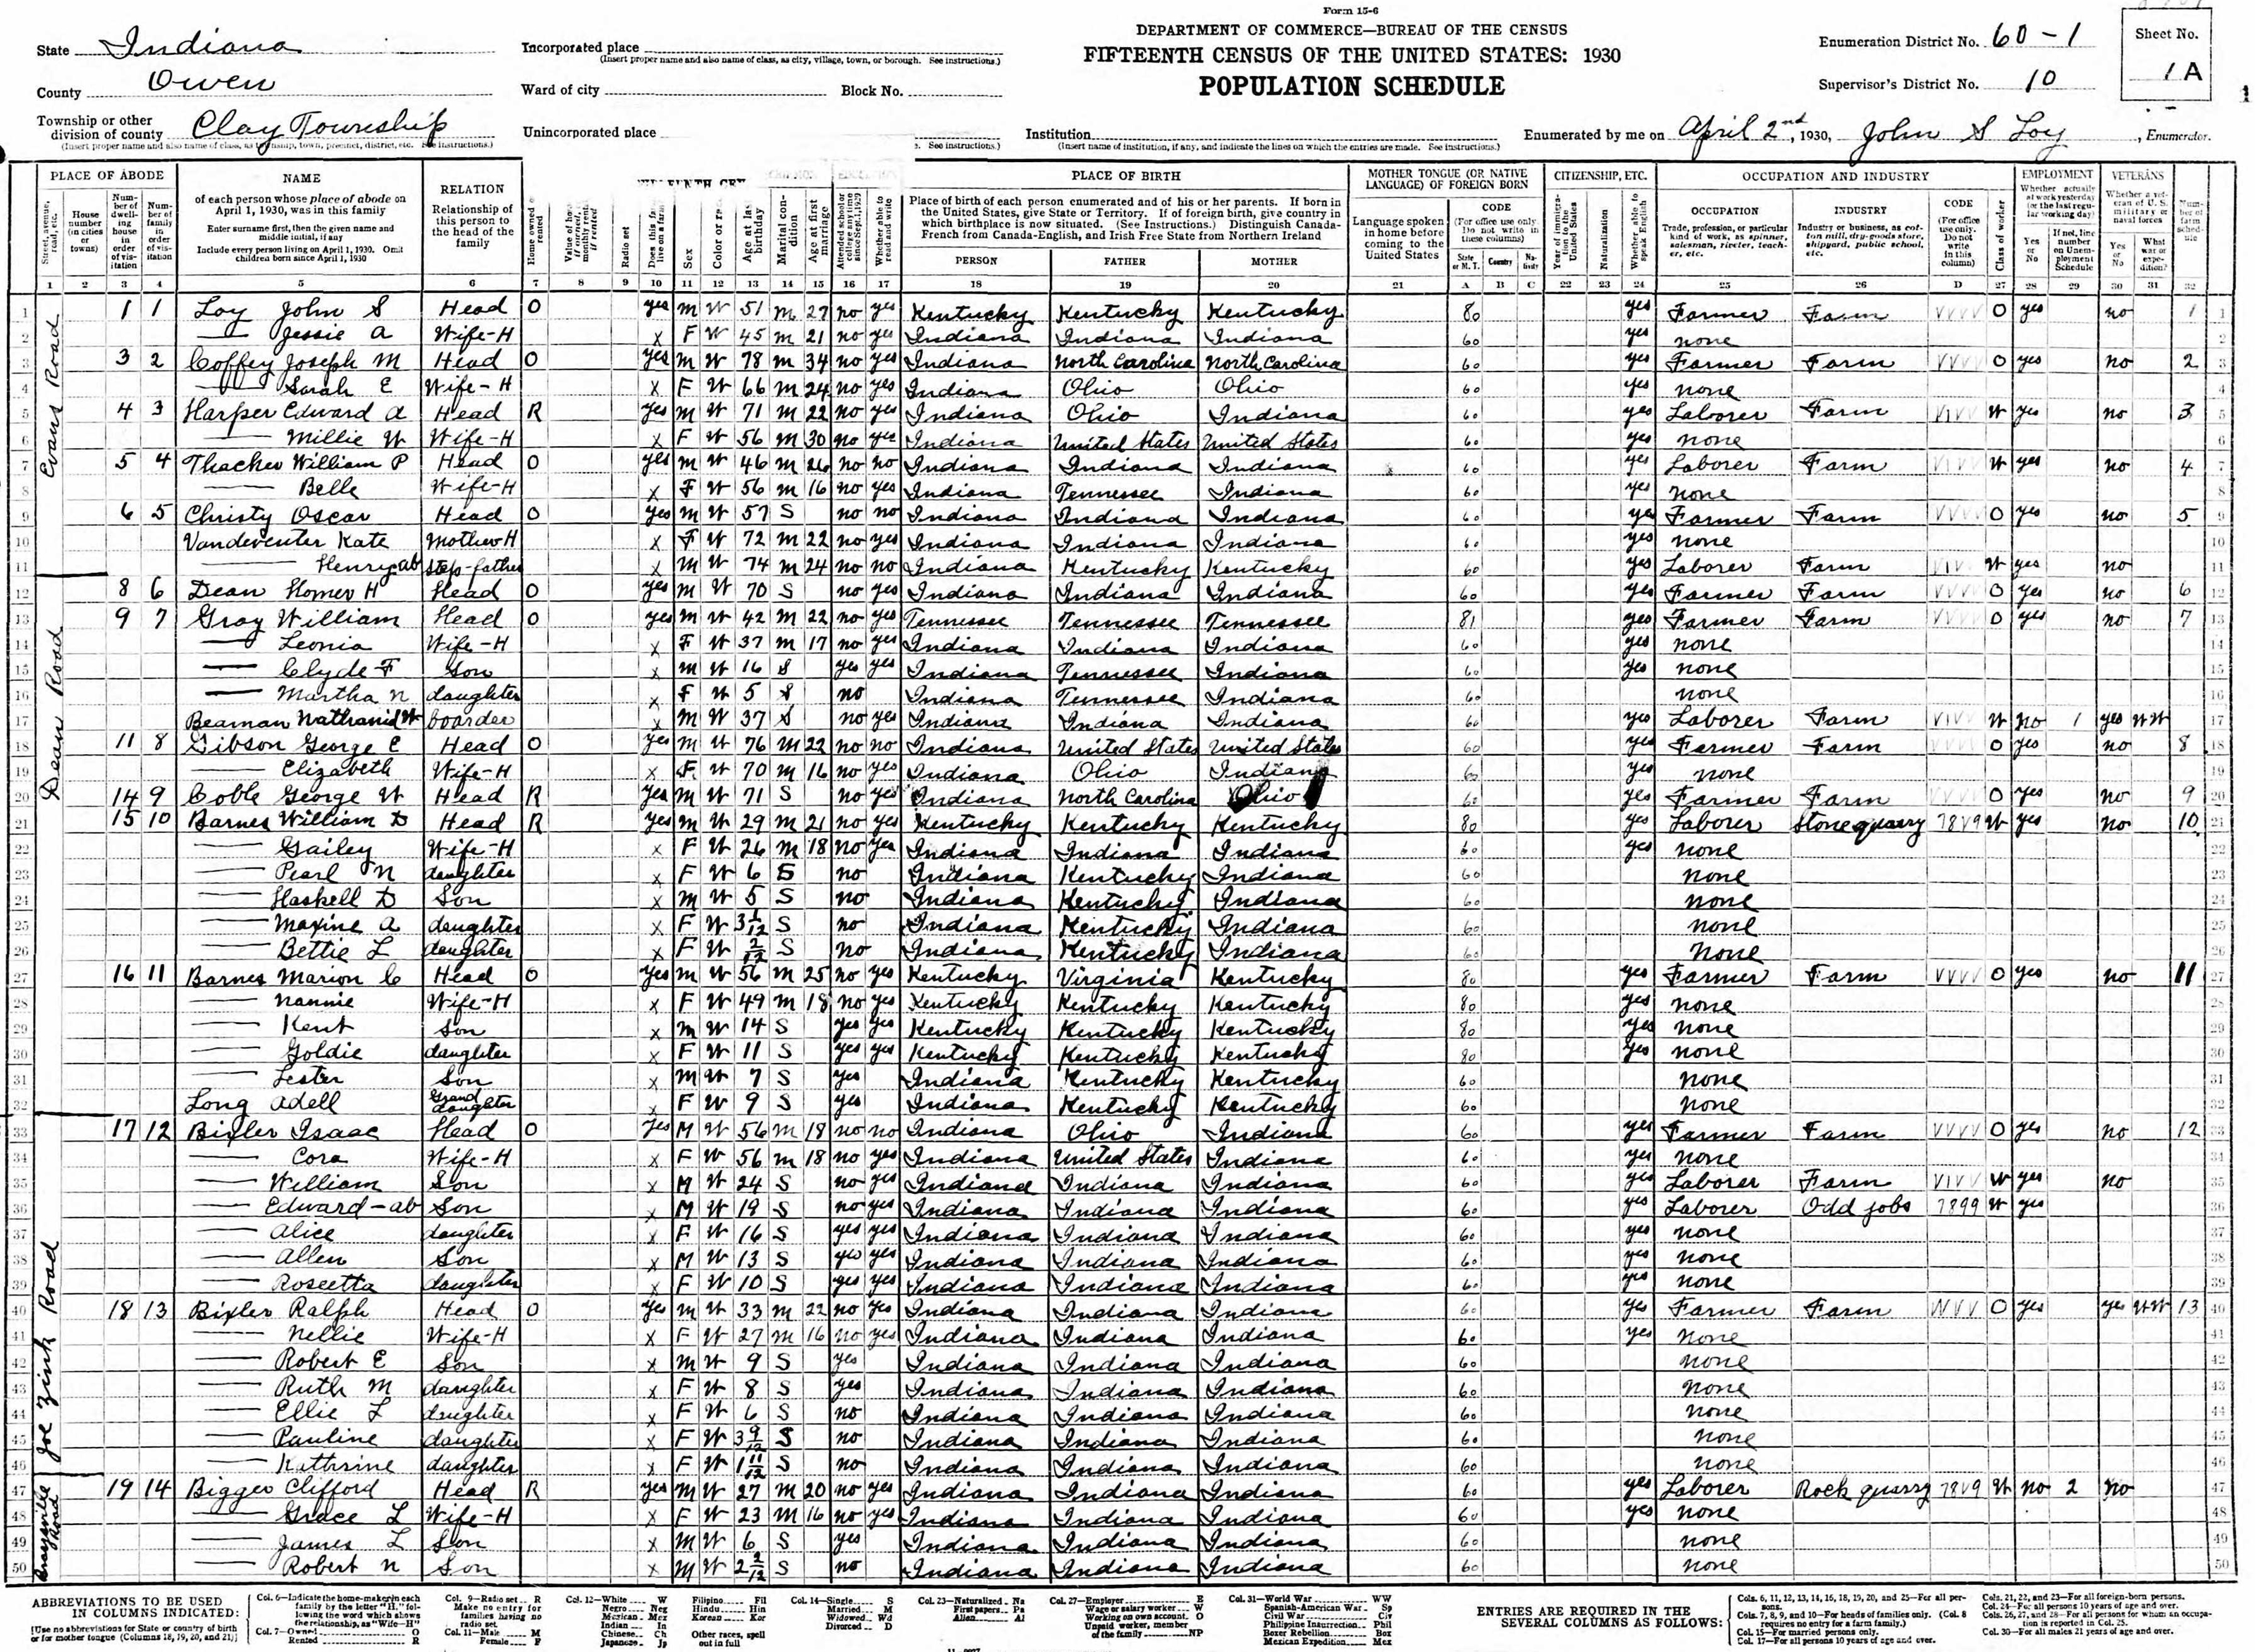 Form 15-6
DEPARTMENT OF COMMERCE—BUREAU OF THE CENSUS
FIFTEENTH CENSUS OF THE UNITED STATES: 1930
POPULATION SCHEDULE
State Indiana
County Owen
Township or other division of county Clay Township
(Insert proper name and also name of class, as township, town, precinct, district, etc. See instructions.)
Incorporated place
(Insert proper name and also name of class, as city, village, town, or borough. See instructions.)
Ward of city Block No.
Unincorporated place
Institution
(Insert name of institution, if any, and indicate the lines on which the entries are made. See instructions.)
Enumeration District No. 60-1
Supervisor's District No. 10
Sheet No. 1 A
Enumerated by me on April 2nd, 1930, John S Loy, Enumerator.
PLACE OF ABODE NAME RELATION PLACE OF BIRTH MOTHER TONGUE (OR NATIVE LANGUAGE) OF FOREIGN BORN CITIZENSHIP, ETC. OCCUPATION AND INDUSTRY EMPLOYMENT VETERANS
of each person whose place of abode on April 1, 1930, was in this family
Enter surname first, then the given name and middle initial, if any
Include every person living on April 1, 1930. Omit children born since April 1, 1930
Relationship of this person to the head of the family
Place of birth of each person enumerated and of his or her parents. If born in the United States, give State or Territory. If of foreign birth, give country in which birthplace is now situated. (See Instructions.) Distinguish Canada-French from Canada-English, and Irish Free State from Northern Ireland
PERSON FATHER MOTHER
Language spoken in home before coming to the United States
OCCUPATION INDUSTRY CODE
Evans Road
1 1 1 Loy John S Head O yes M W 51 M 27 no yes Kentucky Kentucky Kentucky 80 yes Farmer Farm VVVV O yes no 1
2 — Jessie A Wife-H x F W 45 M 21 no yes Indiana Indiana Indiana 60 yes none
3 3 2 Coffey Joseph M Head O yes M W 78 M 34 no yes Indiana North Carolina North Carolina 60 yes Farmer Farm VVVV O yes no 2
4 — Sarah E Wife-H x F W 66 M 24 no yes Indiana Ohio Ohio 60 yes none
5 4 3 Harper Edward A Head R yes M W 71 M 22 no yes Indiana Ohio Indiana 60 yes Laborer Farm VIVV W yes no 3
6 — Millie W Wife-H x F W 56 M 30 no yes Indiana United States United States 60 yes none
7 5 4 Thacker William P Head O yes M W 46 M 26 no no Indiana Indiana Indiana 60 yes Laborer Farm VIVV W yes no 4
8 — Belle Wife-H x F W 56 M 16 no yes Indiana Tennessee Indiana 60 yes none
9 6 5 Christy Oscar Head O yes M W 57 S no no Indiana Indiana Indiana 60 yes Farmer Farm VVVV O yes no 5
10 Vandeventer Kate Mother H x F W 72 M 22 no yes Indiana Indiana Indiana 60 yes none
11 — Henry ab Step-father x M W 74 M 24 no no Indiana Kentucky Kentucky 60 yes Laborer Farm VIVV W yes no
Dean Road
12 8 6 Dean Homer H Head O yes M W 70 S no yes Indiana Indiana Indiana 60 yes Farmer Farm VVVV O yes no 6
13 9 7 Gray William Head O yes M W 42 M 22 no yes Tennessee Tennessee Tennessee 81 yes Farmer Farm VVVV O yes no 7
14 — Leonia Wife-H x F W 37 M 17 no yes Indiana Indiana Indiana 60 yes none
15 — Clyde F Son x M W 16 S yes yes Indiana Tennessee Indiana 60 yes none
16 — Martha N daughter x F W 5 S no Indiana Tennessee Indiana 60 none
17 Beaman Nathaniel W boarder x M W 37 S no yes Indiana Indiana Indiana 60 yes Laborer Farm VIVV W no 1 yes WW
18 11 8 Gibson George E Head O yes M W 76 M 22 no no Indiana United States United States 60 yes Farmer Farm VVVV O yes no 8
19 — Elizabeth Wife-H x F W 70 M 16 no yes Indiana Ohio Indiana 60 yes none
20 14 9 Coble George W Head R yes M W 71 S no yes Indiana North Carolina Ohio 60 yes Farmer Farm VVVV O yes no 9
21 15 10 Barnes William D Head R yes M W 29 M 21 no yes Kentucky Kentucky Kentucky 80 yes Laborer Stone quarry 78V9 W yes no 10
22 — Gailey Wife-H x F W 26 M 18 no yes Indiana Indiana Indiana 60 yes none
23 — Pearl N daughter x F W 6 S no Indiana Kentucky Indiana 60 none
24 — Haskell D Son x M W 5 S no Indiana Kentucky Indiana 60 none
25 — Maxine A daughter x F W 3 1/12 S no Indiana Kentucky Indiana 60 none
26 — Bettie L daughter x F W 2/12 S no Indiana Kentucky Indiana 60 none
27 16 11 Barnes Marion C Head O yes M W 56 M 25 no yes Kentucky Virginia Kentucky 80 yes Farmer Farm VVVV O yes no 11
28 — Nannie Wife-H x F W 49 M 18 no yes Kentucky Kentucky Kentucky 80 yes none
29 — Kent Son x M W 14 S yes yes Kentucky Kentucky Kentucky 80 yes none
30 — Goldie daughter x F W 11 S yes yes Kentucky Kentucky Kentucky 80 yes none
31 — Lester Son x M W 7 S yes Indiana Kentucky Kentucky 60 none
32 Long Adell Grand daughter x F W 9 S yes Indiana Kentucky Kentucky 60 none
Joe Zink Road
33 17 12 Bixler Isaac Head O yes M W 56 M 18 no no Indiana Ohio Indiana 60 yes Farmer Farm VVVV O yes no 12
34 — Cora Wife-H x F W 56 M 18 no yes Indiana United States Indiana 60 yes none
35 — William Son x M W 24 S no yes Indiana Indiana Indiana 60 yes Laborer Farm VIVV W yes no
36 — Edward-ab Son x M W 19 S no yes Indiana Indiana Indiana 60 yes Laborer Odd jobs 7899 W yes
37 — Alice daughter x F W 16 S yes yes Indiana Indiana Indiana 60 yes none
38 — Allen Son x M W 13 S yes yes Indiana Indiana Indiana 60 yes none
39 — Roseetta daughter x F W 10 S yes yes Indiana Indiana Indiana 60 yes none
40 18 13 Bixler Ralph Head O yes M W 33 M 22 no yes Indiana Indiana Indiana 60 yes Farmer Farm VVVV O yes yes WW 13
41 — Nellie Wife-H x F W 27 M 16 no yes Indiana Indiana Indiana 60 yes none
42 — Robert E Son x M W 9 S yes Indiana Indiana Indiana 60 none
43 — Ruth M daughter x F W 8 S yes Indiana Indiana Indiana 60 none
44 — Ellie L daughter x F W 6 S no Indiana Indiana Indiana 60 none
45 — Pauline daughter x F W 3 9/12 S no Indiana Indiana Indiana 60 none
46 — Kathrine daughter x F W 1 11/12 S no Indiana Indiana Indiana 60 none
47 19 14 Bigger Clifford Head R yes M W 27 M 20 no yes Indiana Indiana Indiana 60 yes Laborer Rock quarry 78V9 W no 2 no
48 — Grace L Wife-H x F W 23 M 16 no yes Indiana Indiana Indiana 60 yes none
49 — James L Son x M W 6 S yes Indiana Indiana Indiana 60 none
50 — Robert N Son x M W 2 2/12 S no Indiana Indiana Indiana 60 none
ABBREVIATIONS TO BE USED IN COLUMNS INDICATED:
[Use no abbreviations for State or country of birth or for mother tongue (Columns 18, 19, 20, and 21)]
ENTRIES ARE REQUIRED IN THE SEVERAL COLUMNS AS FOLLOWS: